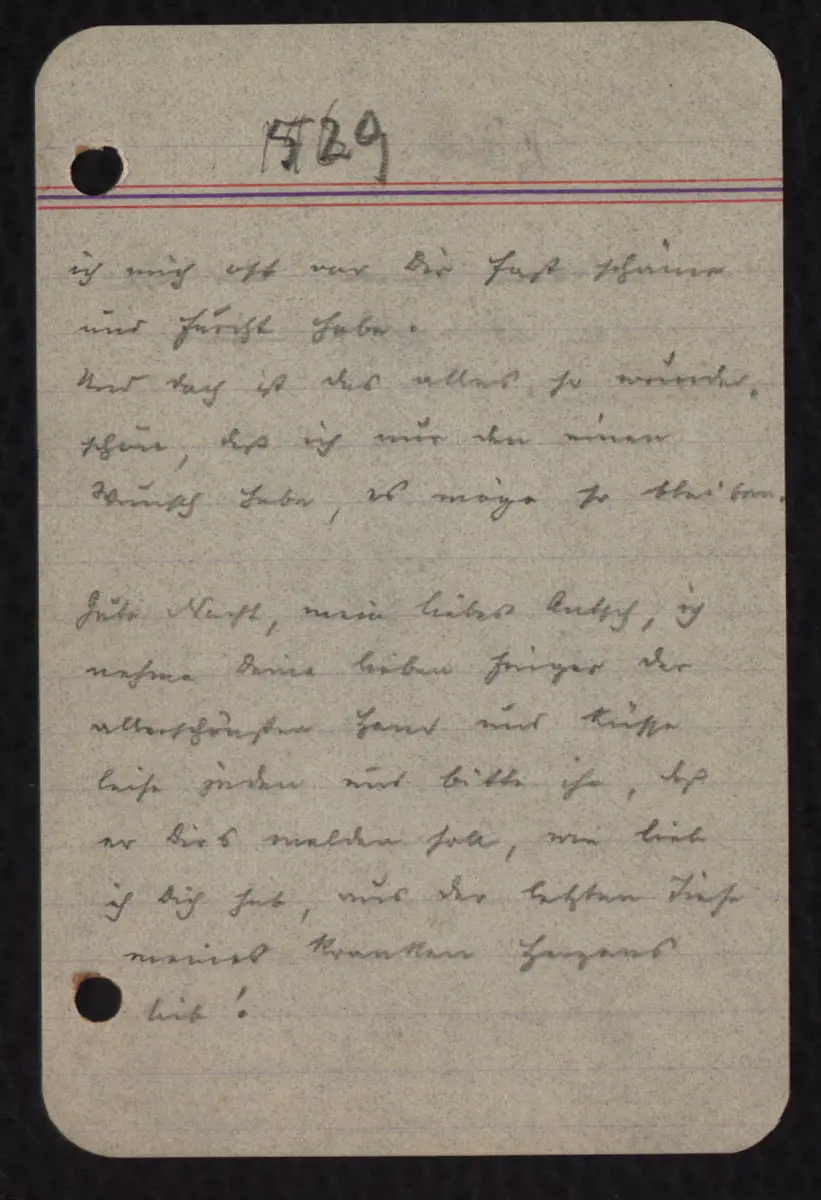 529
ich mich oft vor Dir fast schäme
und Furcht habe.
Und doch ist das alles so wunder-
schön, daß ich nur den einen
Wunsch habe, es möge so bleiben.
Gute Nacht, mein liebes Antsch, ich
nehme Deine lieben Finger der
allerschönsten Hand und küsse
leise jeden und bitte ihn, daß
er Dirs melden soll, wie lieb
ich Dich hab, aus der letzten Tiefe
meines kranken Herzens
lieb!